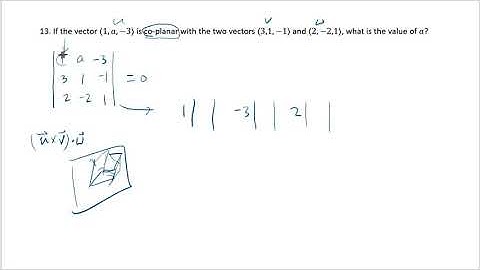 u v w
13. If the vector (1, a, −3) is co-planar with the two vectors (3,1, −1) and (2, −2,1), what is the value of a?
| a -3 |
| 3 1 -1 | = 0
| 2 -2 1 | → 1| | -3| | 2| |
(u⃗ × v⃗) · w⃗